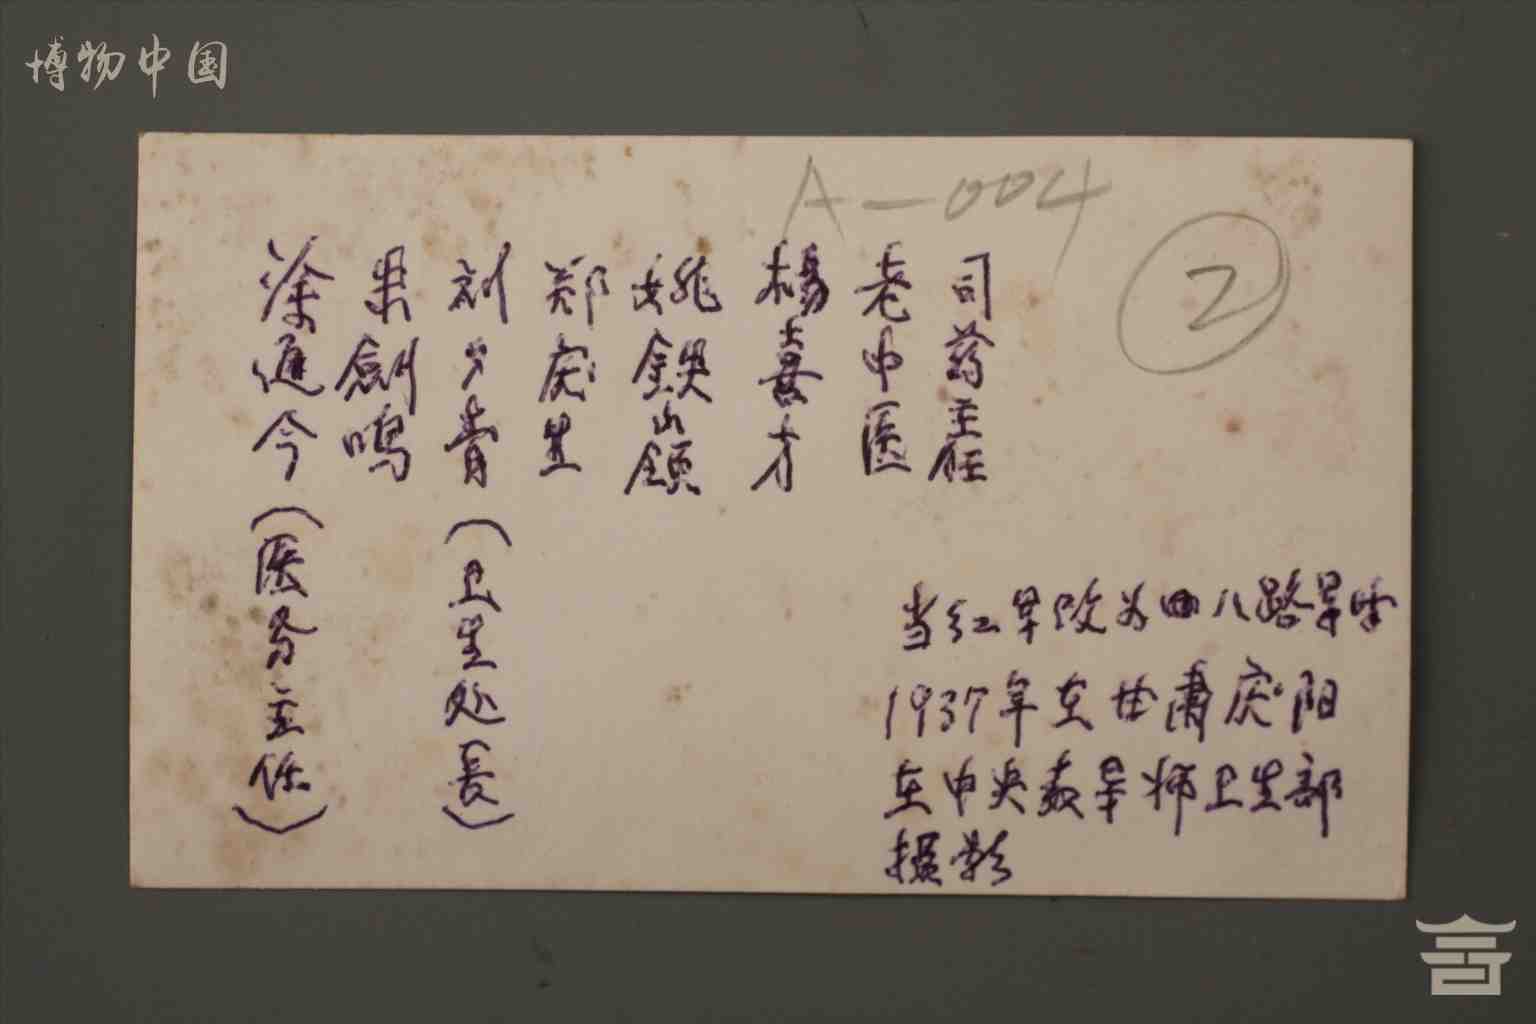 博物中国
A-004
2
涂通今（医务主任）
果剑鸣
刘夕青（卫生处长）
郑庆生
姚铁山
杨喜才
老中医
司药主任
当红军改为八路军中
1937年在甘肃庆阳
在中央教导师卫生部
摄影